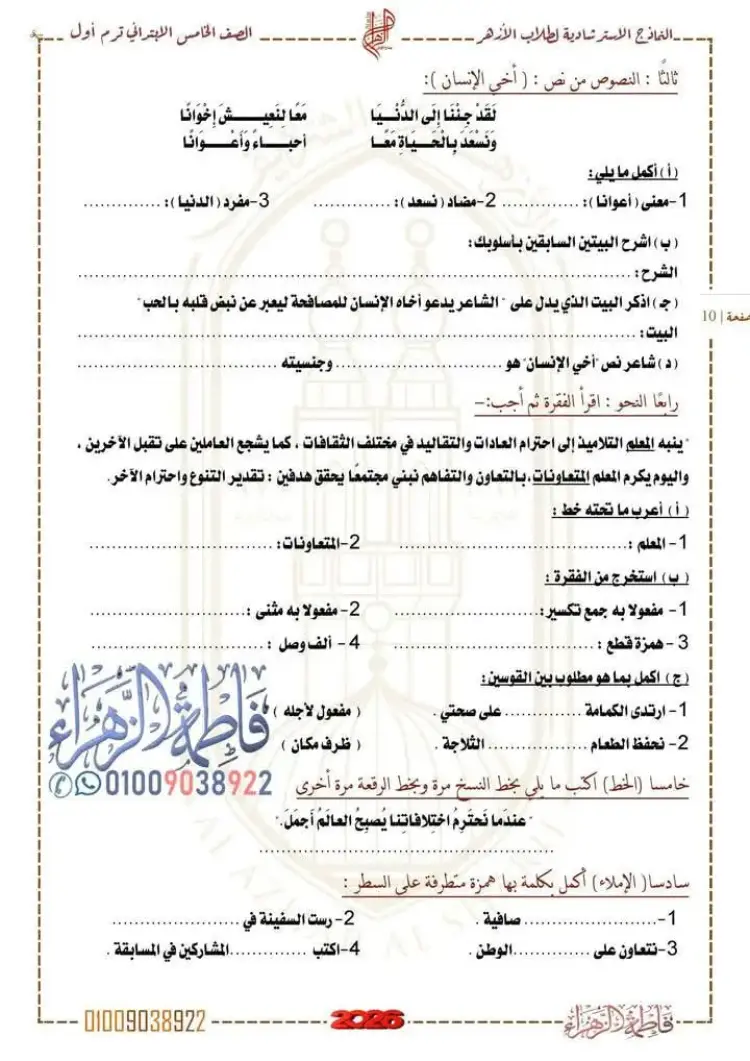 النماذج الاسترشادية لطلاب الأزهر
الصف الخامس الابتدائي ترم أول
ثالثًا : النصوص من نص : ( أخي الإنسان ):
لَقَدْ جِئْنَا إِلَى الدُّنْيَا مَعًا لِنَعِيشَ إِخْوَانًا
وَنَسْعَدَ بِالْحَيَاةِ مَعًا أحباءً وَأَعْوَانًا
( أ ) أكمل ما يلي:
1-معنى ( أعوانا ): .............. 2-مضاد ( نسعد ): .............. 3-مفرد ( الدنيا ): ..............
( ب ) اشرح البيتين السابقين بأسلوبك:
الشرح: ..............................................................................
( جـ ) اذكر البيت الذي يدل على " الشاعر يدعو أخاه الإنسان للمصافحة ليعبر عن نبض قلبه بالحب"
صفحة | 10
البيت: ..............................................................................
( د ) شاعر نص "أخي الإنسان" هو .............................. وجنسيته ..............................
رابعًا النحو : اقرأ الفقرة ثم أجب:-
"ينبه المعلم التلاميذ إلى احترام العادات والتقاليد في مختلف الثقافات ، كما يشجع العاملين على تقبل الآخرين ،
واليوم يكرم المعلم المتعاونات، بالتعاون والتفاهم نبني مجتمعًا يحقق هدفين : تقدير التنوع واحترام الآخر.
( أ ) أعرب ما تحته خط :
1- المعلم : .............................. 2-المتعاونات: ..............................
( ب ) استخرج من الفقرة :
1- مفعولا به جمع تكسير: .............................. 2-مفعولا به مثنى : ..............................
3-همزة قطع : .............................. 4- ألف وصل : ..............................
( ج ) اكمل بما هو مطلوب بين القوسين:
1- ارتدى الكمامة .............. على صحتي . ( مفعول لأجله )
2- نحفظ الطعام .............. الثلاجة . ( ظرف مكان )
فاطمة الزهراء
01009038922
خامسا (الخط) اكتب ما يلي بخط النسخ مرة وبخط الرقعة مرة أخرى
"عندَما نَحتَرِمُ اختِلافاتِنا يُصبِحُ العالَمُ أجمَلَ."
..................................................
سادسا( الإملاء) أكمل بكلمة بها همزة متطرفة على السطر :
1-........................ صافية . 2- رست السفينة في ........................
3-نتعاون على .............. الوطن . 4-اكتب .............. المشاركين في المسابقة .
فاطمة الزهراء
2026
01009038922